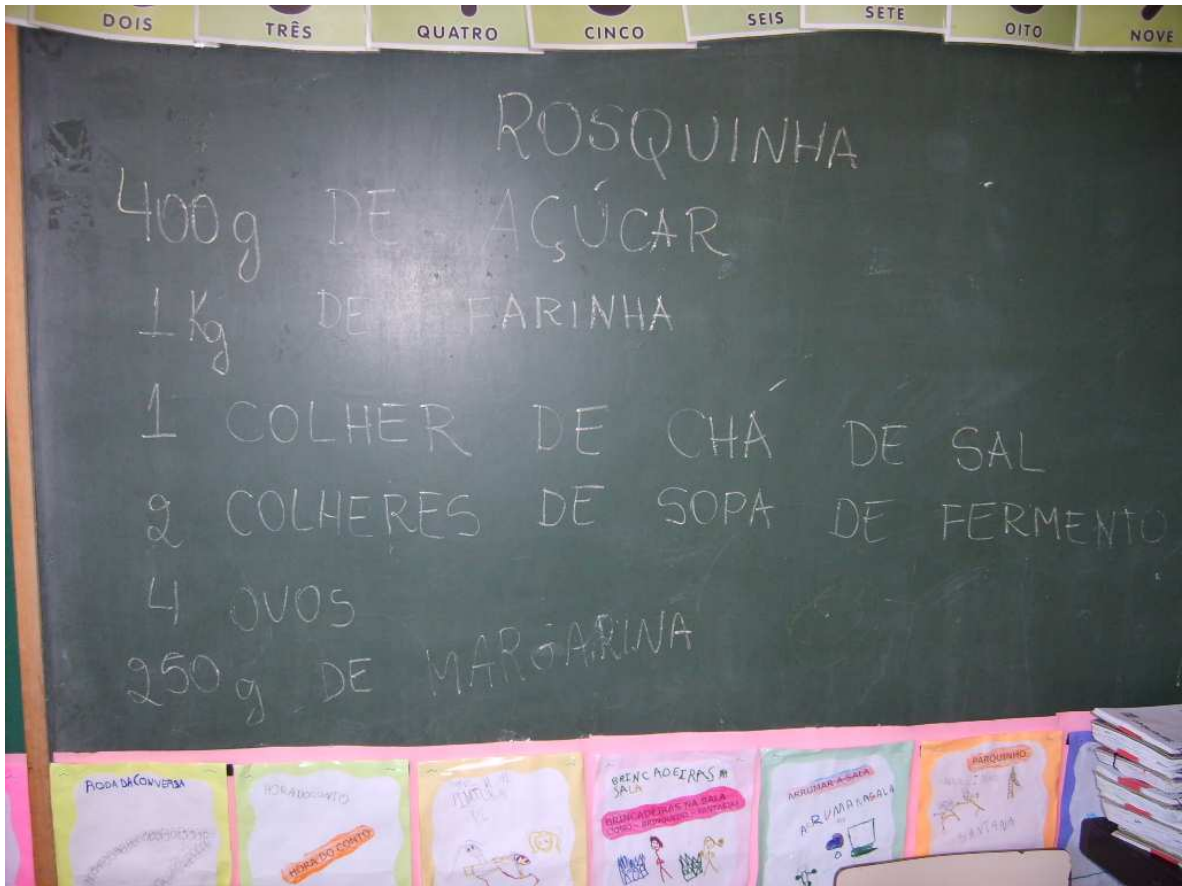 DOIS
TRÊS
QUATRO
CINCO
SEIS
SETE
OITO
NOVE
ROSQUINHA
400g DE AÇÚCAR
1Kg DE FARINHA
1 COLHER DE CHÁ DE SAL
2 COLHERES DE SOPA DE FERMENTO
4 OVOS
250g DE MARGARINA
RODA DA CONVERSA
HORA DO CONTO
BRINCADEIRAS NA
SALA
BRINCADEIRAS NA SALA
ARRUMAR A SALA
ARUMARASALA
PARQUINHO